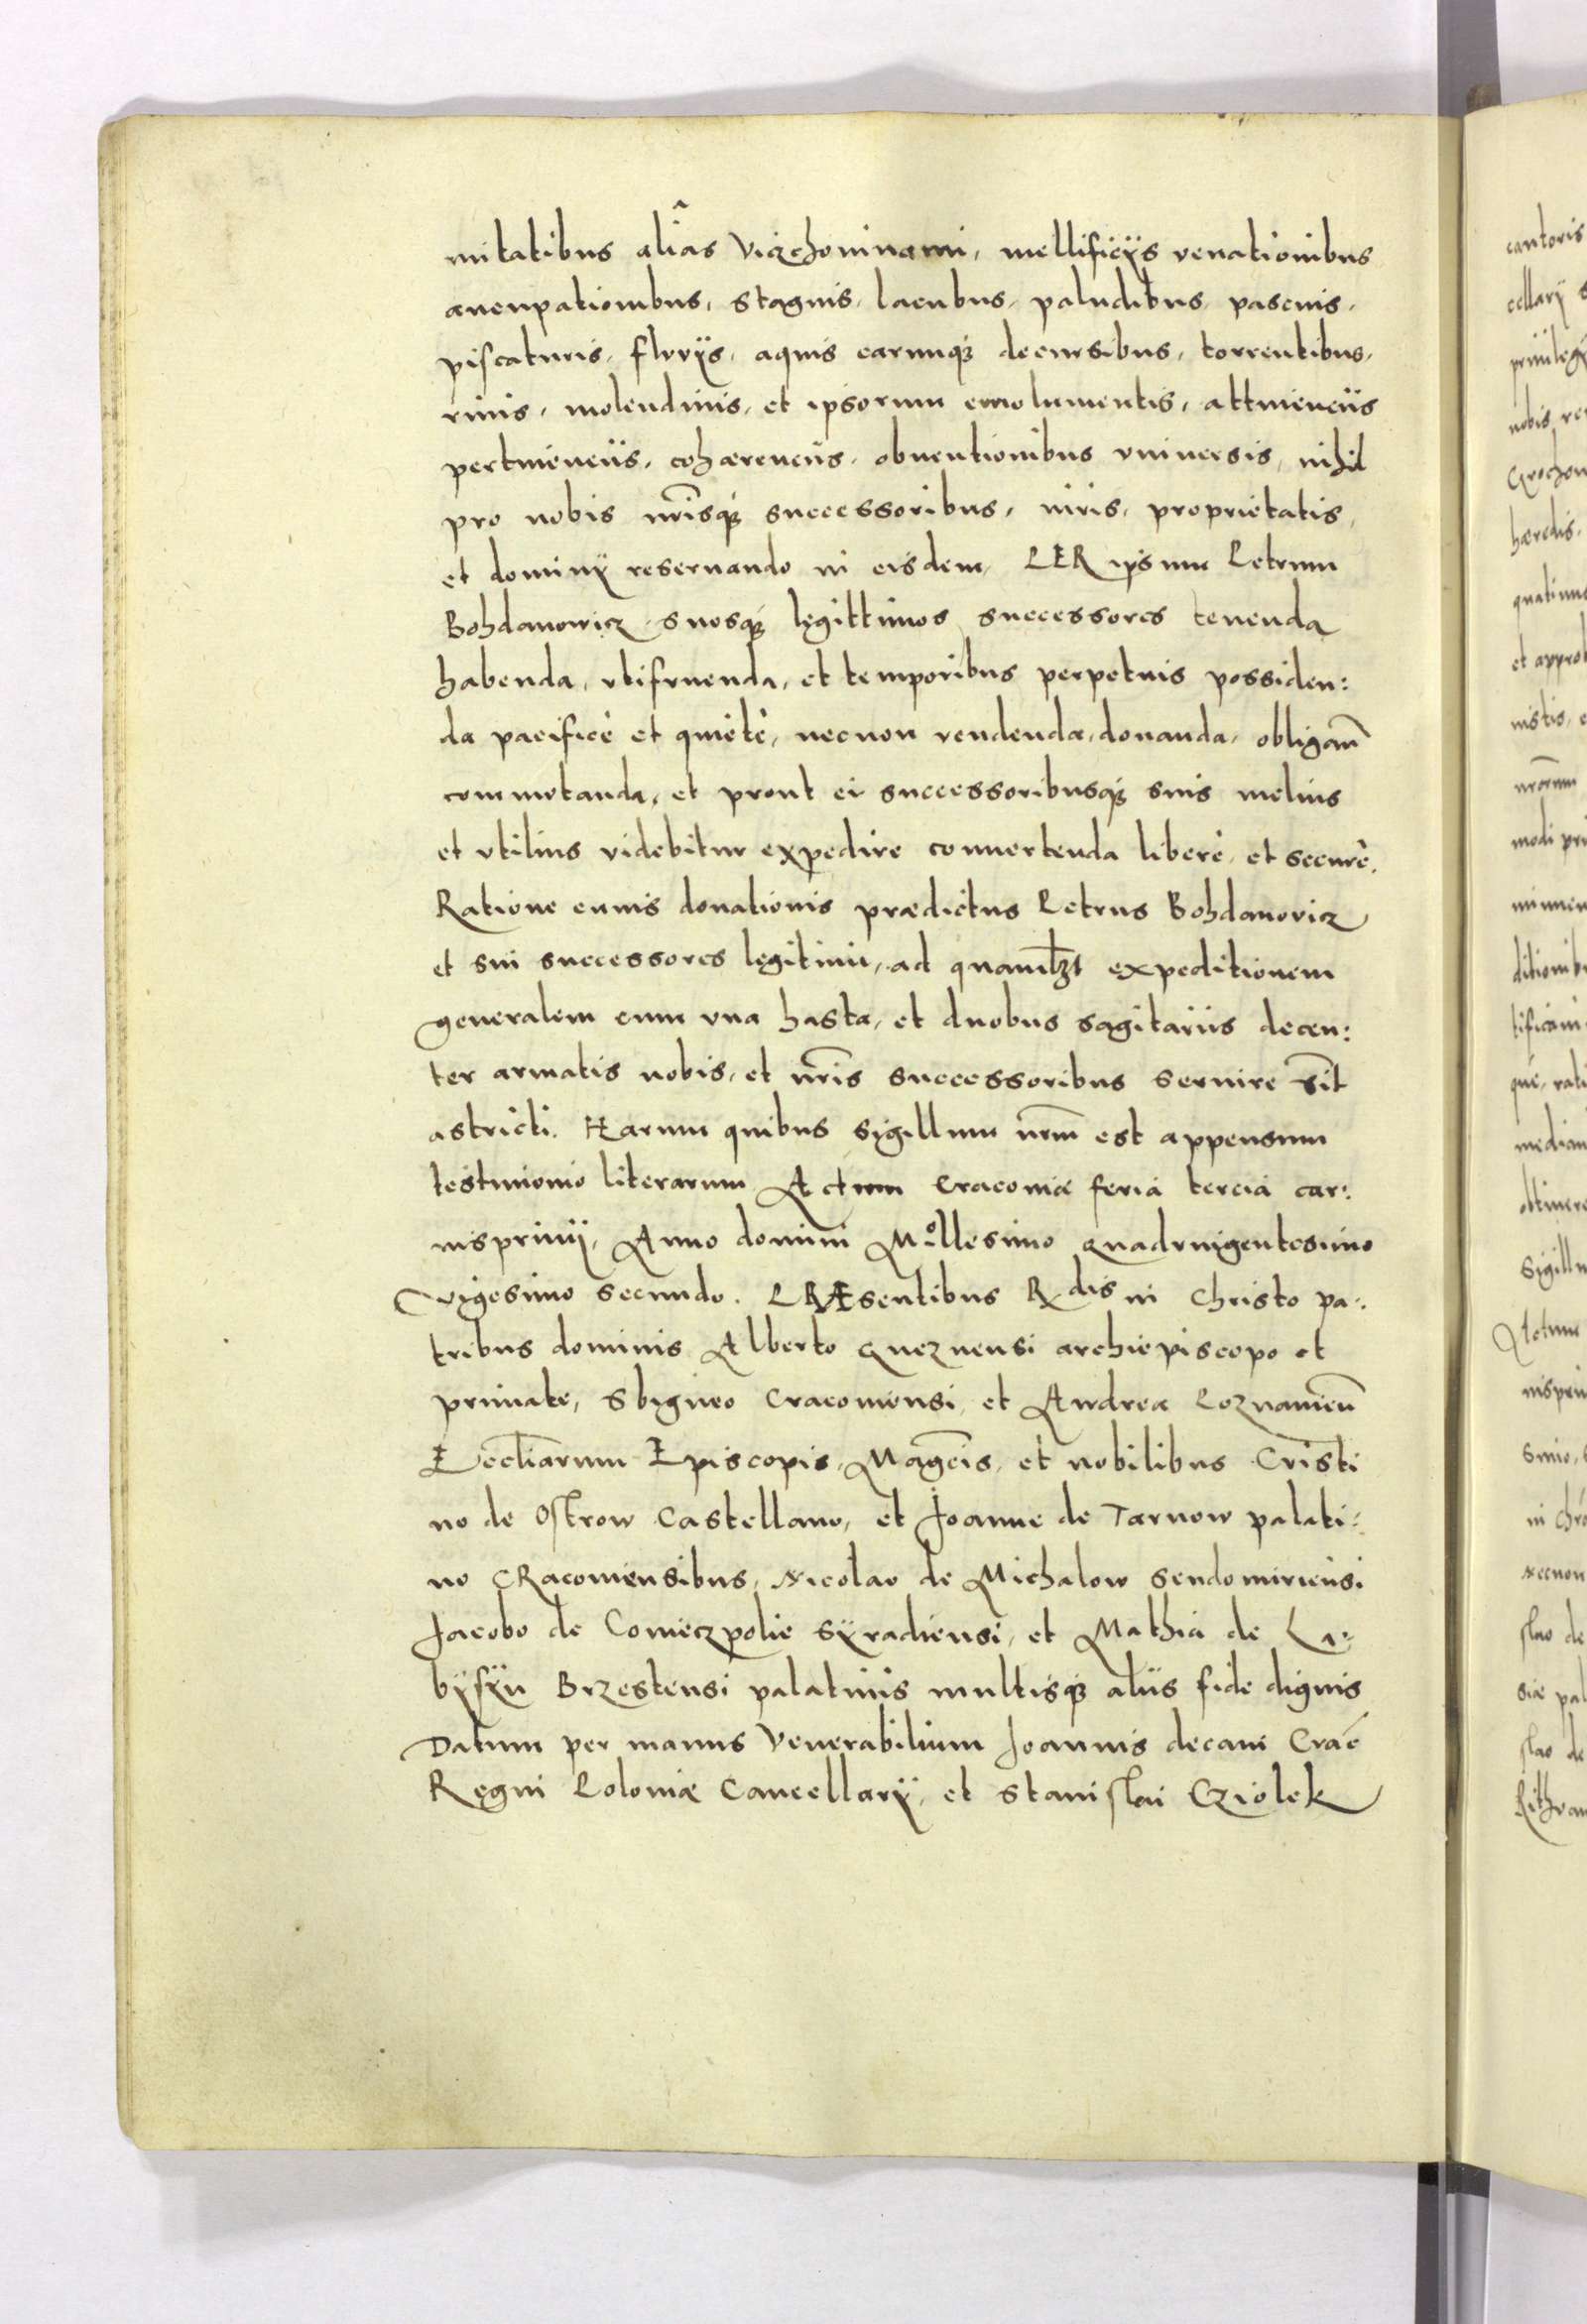 mitatibus aliâs Virzchovinami, mellificÿs venationibus
aucupationibus, stagnis, lacubus, paludibus, pascuis,
piscaturis, fluvÿs, aquis earumq́; decursibus, torrentibus,
rivis, molendinis, et ipsorum emolumentis, attinencÿs
pertinencÿs, cohærencÿs, obuentionibus vniuersis, nihil
pro nobis nr̃isq́; successoribus, iuris, proprietatis,
et dominÿ reseruando in eisdem, PER ipsum Petrum
Bohdanowicz suosq́; legittimos successores tenenda
habenda, vtifruenda, et temporibus perpetuis possiden:
da pacificè et quietè, necnon vendenda, donanda, obligan̄
commutanda, et prout ei successoribusq́; suis melius
et vtilius videbitur expedire conuertenda liberè, et securè.
Ratione cuius donationis prædictus Petrus Bohdanovicz
et sui successores legitimi, ad quamlꝫt expeditionem
generalem cum vna hasta, et duobus sagitarÿs decen:
ter armatis nobis, et nr̃is successoribus seruire sīt
astricti. Harum quibus sigillum nr̃m est appensum
testimonio literarum Actum Cracoviæ feria tercia car:
nispriuÿ, Anno domini Millesimo quadringentesimo
vigesimo secundo. PRÆsentibus Rdis in Christo pa:
tribus dominis Alberto gneznensi archiepiscopo et
primate, Sbigneo Cracouiensi, et Andrea Poznanien̄
Eccl̃iarum Episcopis, Mag̃cis, et nobilibus Cristi
no de Ostrow Castellano, et Joanne de Tarnow palati:
no CRacouiensibus, Nicolao de Michalow Sendomiriensi
Jacobo de Conieczpolie Sÿradiensi, et Mathia de La:
bÿsÿn Brzestensi palatinis multisq́; alÿs fide dignis
Datum per manus Venerabilium Joannis decani Crac̄
Regni Poloniæ Cancellarÿ, et Stanislai Cziolek
cantoris
cellarÿ s
priuilegÿ
nobis re
Grochow
hæredis,
et approb
nr̃arum
modi pri
ditionib
que, rati
median
obtinere
Sigillu
Actum
nispriu
simo, s
in chr̃
necnon
slao de
siæ pal
slao de
Rithvan